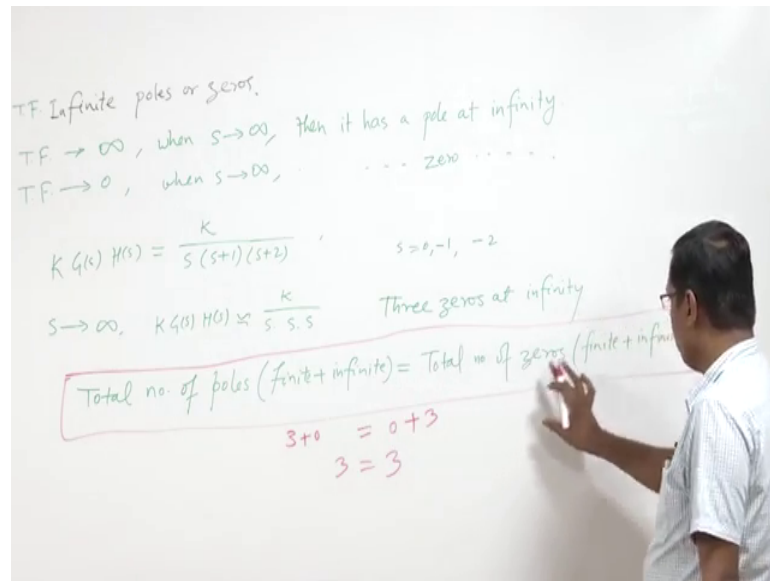 T.F. Infinite poles or zeros.
T.F. → ∞, when s→∞, then it has a pole at infinity.
T.F. → 0, when s→∞, . . . . zero . . . . .
K G(s) H(s) = K / s(s+1)(s+2) . s=0, -1, -2
s→∞, K G(s) H(s) ≈ K / s.s.s Three zeros at infinity
Total no. of poles (finite+infinite) = Total no. of zeros (finite+infini
3+0 = 0+3
3 = 3